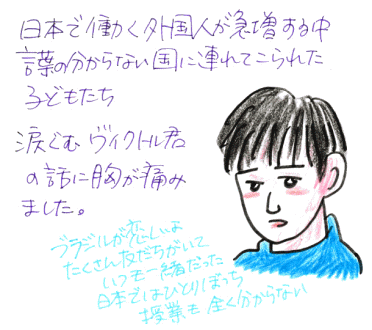 日本で働く外国人が急増する中
言葉の分からない国に連れてこられた
子どもたち
涙ぐむヴィクトル君
の話に胸が痛み
ました。
ブラジルが恋しいよ
たくさん友だちがいて
いつも一緒だった
日本ではひとりぼっち
授業も全く分からない